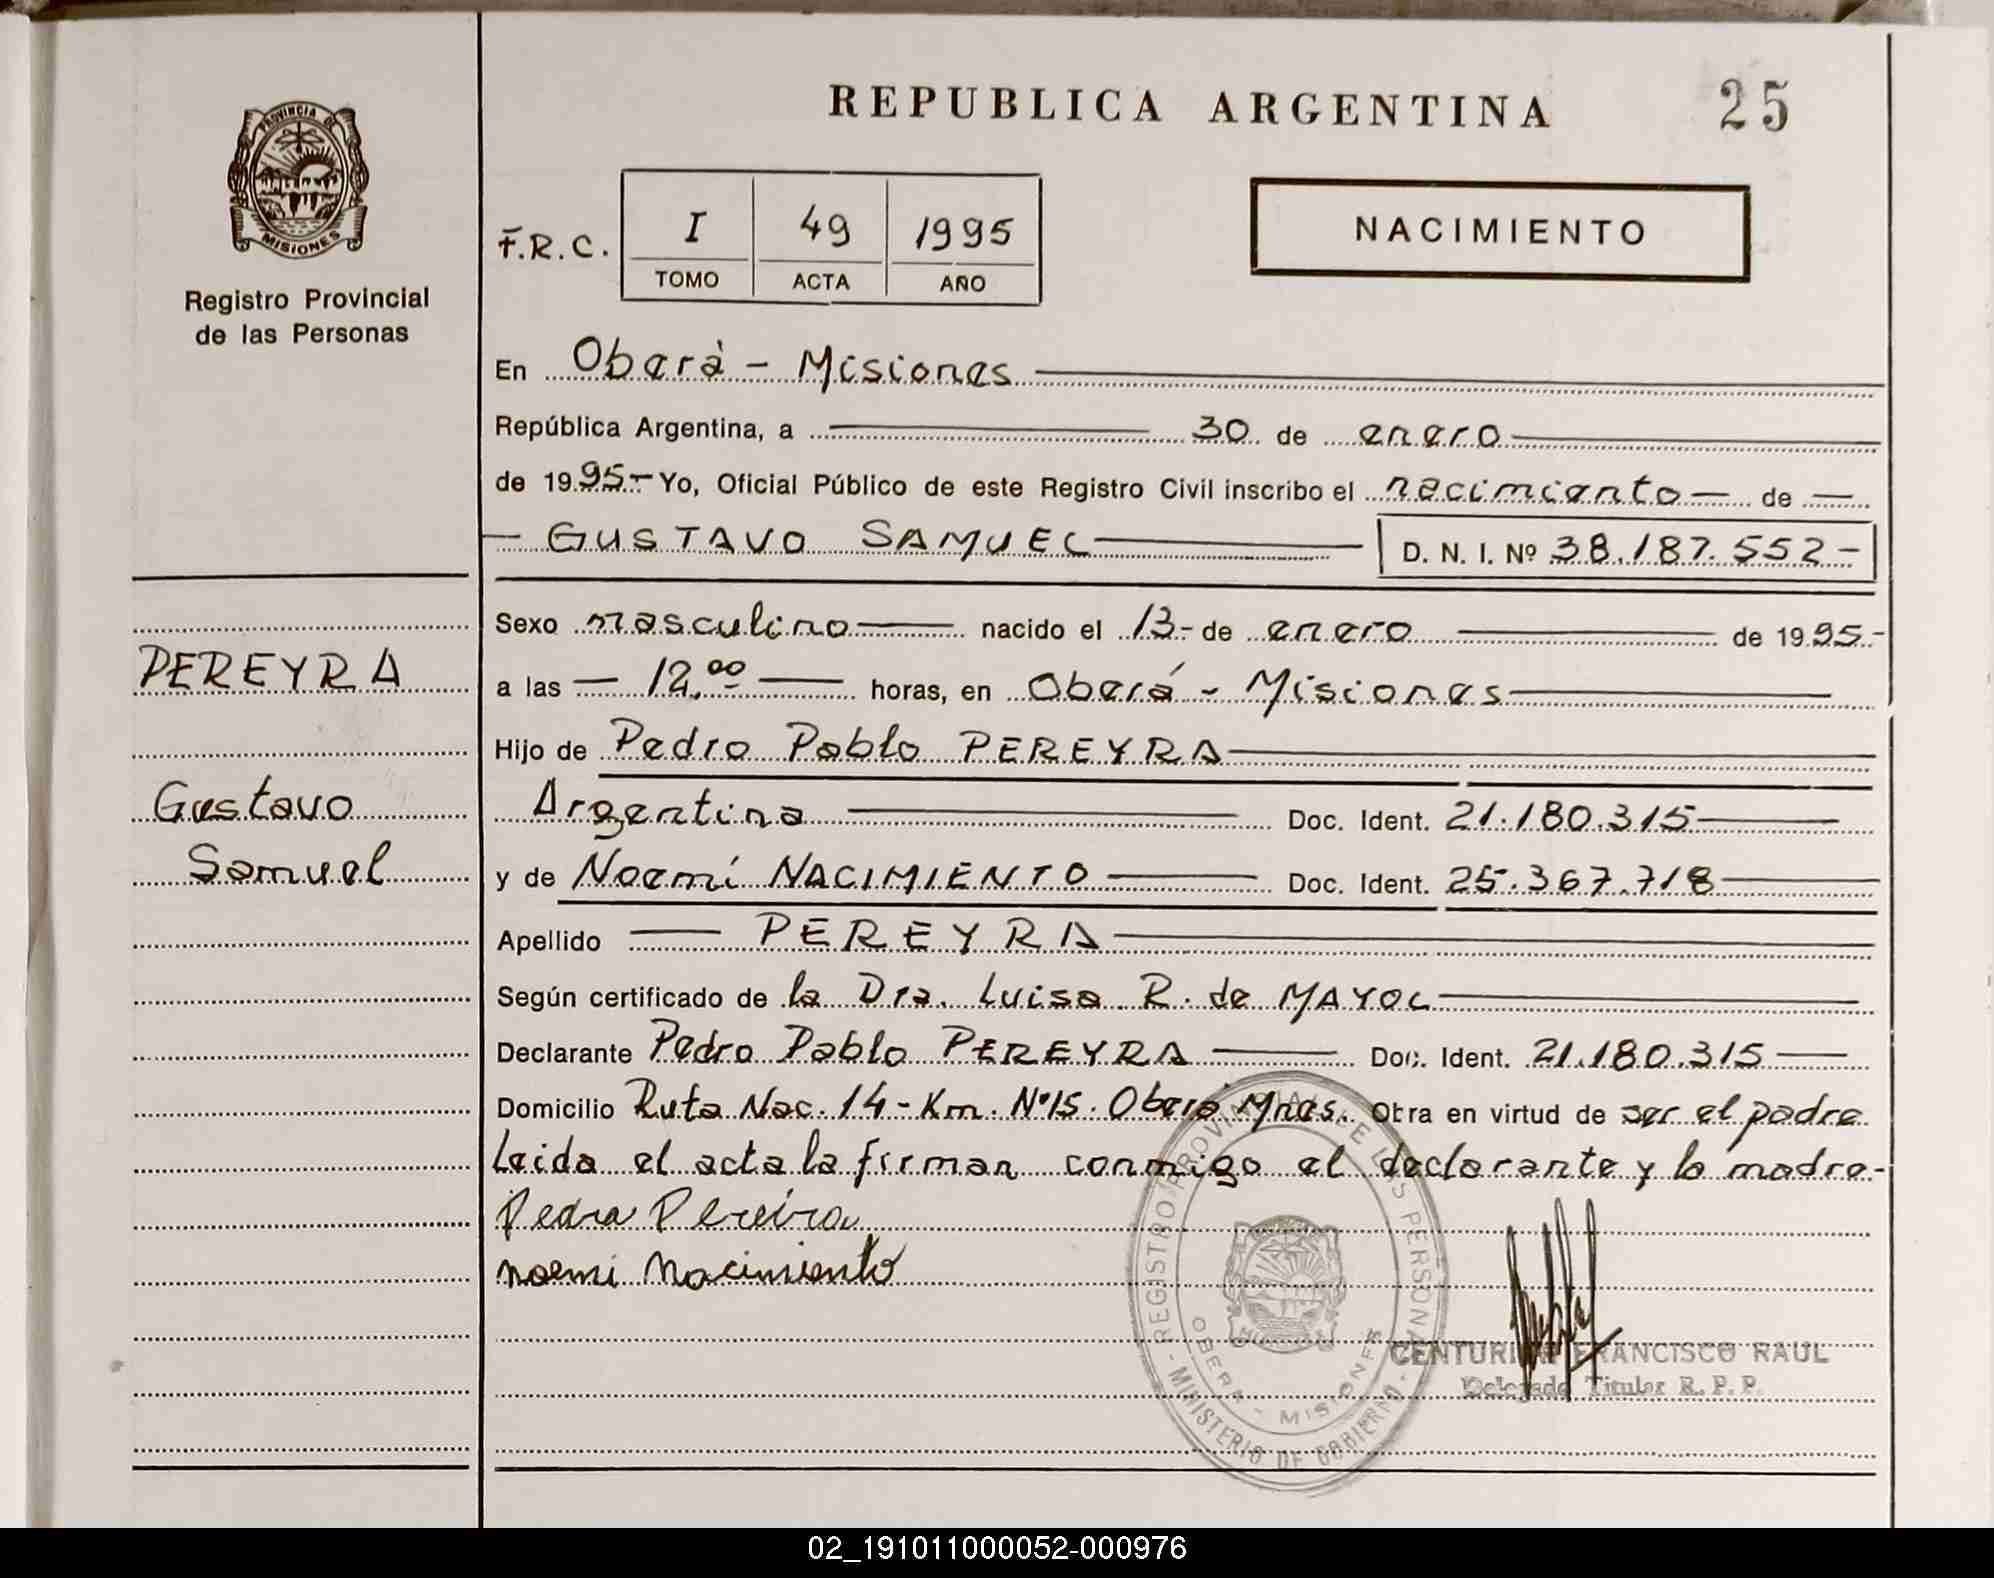 REPUBLICA ARGENTINA
25
PROVINCIA DE
MISIONES
Registro Provincial
de las Personas
F.R.C.
I 49 1995
TOMO ACTA AÑO
NACIMIENTO
En Oberà - Misiones
República Argentina, a 30 de enero
de 1995.- Yo, Oficial Público de este Registro Civil inscribo el nacimiento - de
GUSTAVO SAMUEL D. N. I. Nº 38.187.552-
Sexo masculino nacido el 13- de enero de 1995.-
a las 12,00 horas, en Oberá - Misiones
Hijo de Pedro Pablo PEREYRA
Argentina Doc. Ident. 21.180.315
y de Noemí NACIMIENTO Doc. Ident. 25.367.718
Apellido PEREYRA
Según certificado de la Dra. Luisa R. de MAYOL
Declarante Pedro Pablo PEREYRA Doc. Ident. 21.180.315
Domicilio Ruta Nac. 14 - Km. Nº15. Oberá Mnes. Obra en virtud de ser el padre
Leida el acta la firman conmigo el declarante y la madre-
Pedro Pereira
noemi Nacimiento
PEREYRA
Gustavo
Samuel
REGISTRO PROVINCIAL DE LAS PERSONAS
OBERA - MISIONES
- MINISTERIO DE GOBIERNO -
CENTURION FRANCISCO RAUL
Delegado Titular R. P. P.
02_191011000052-000976